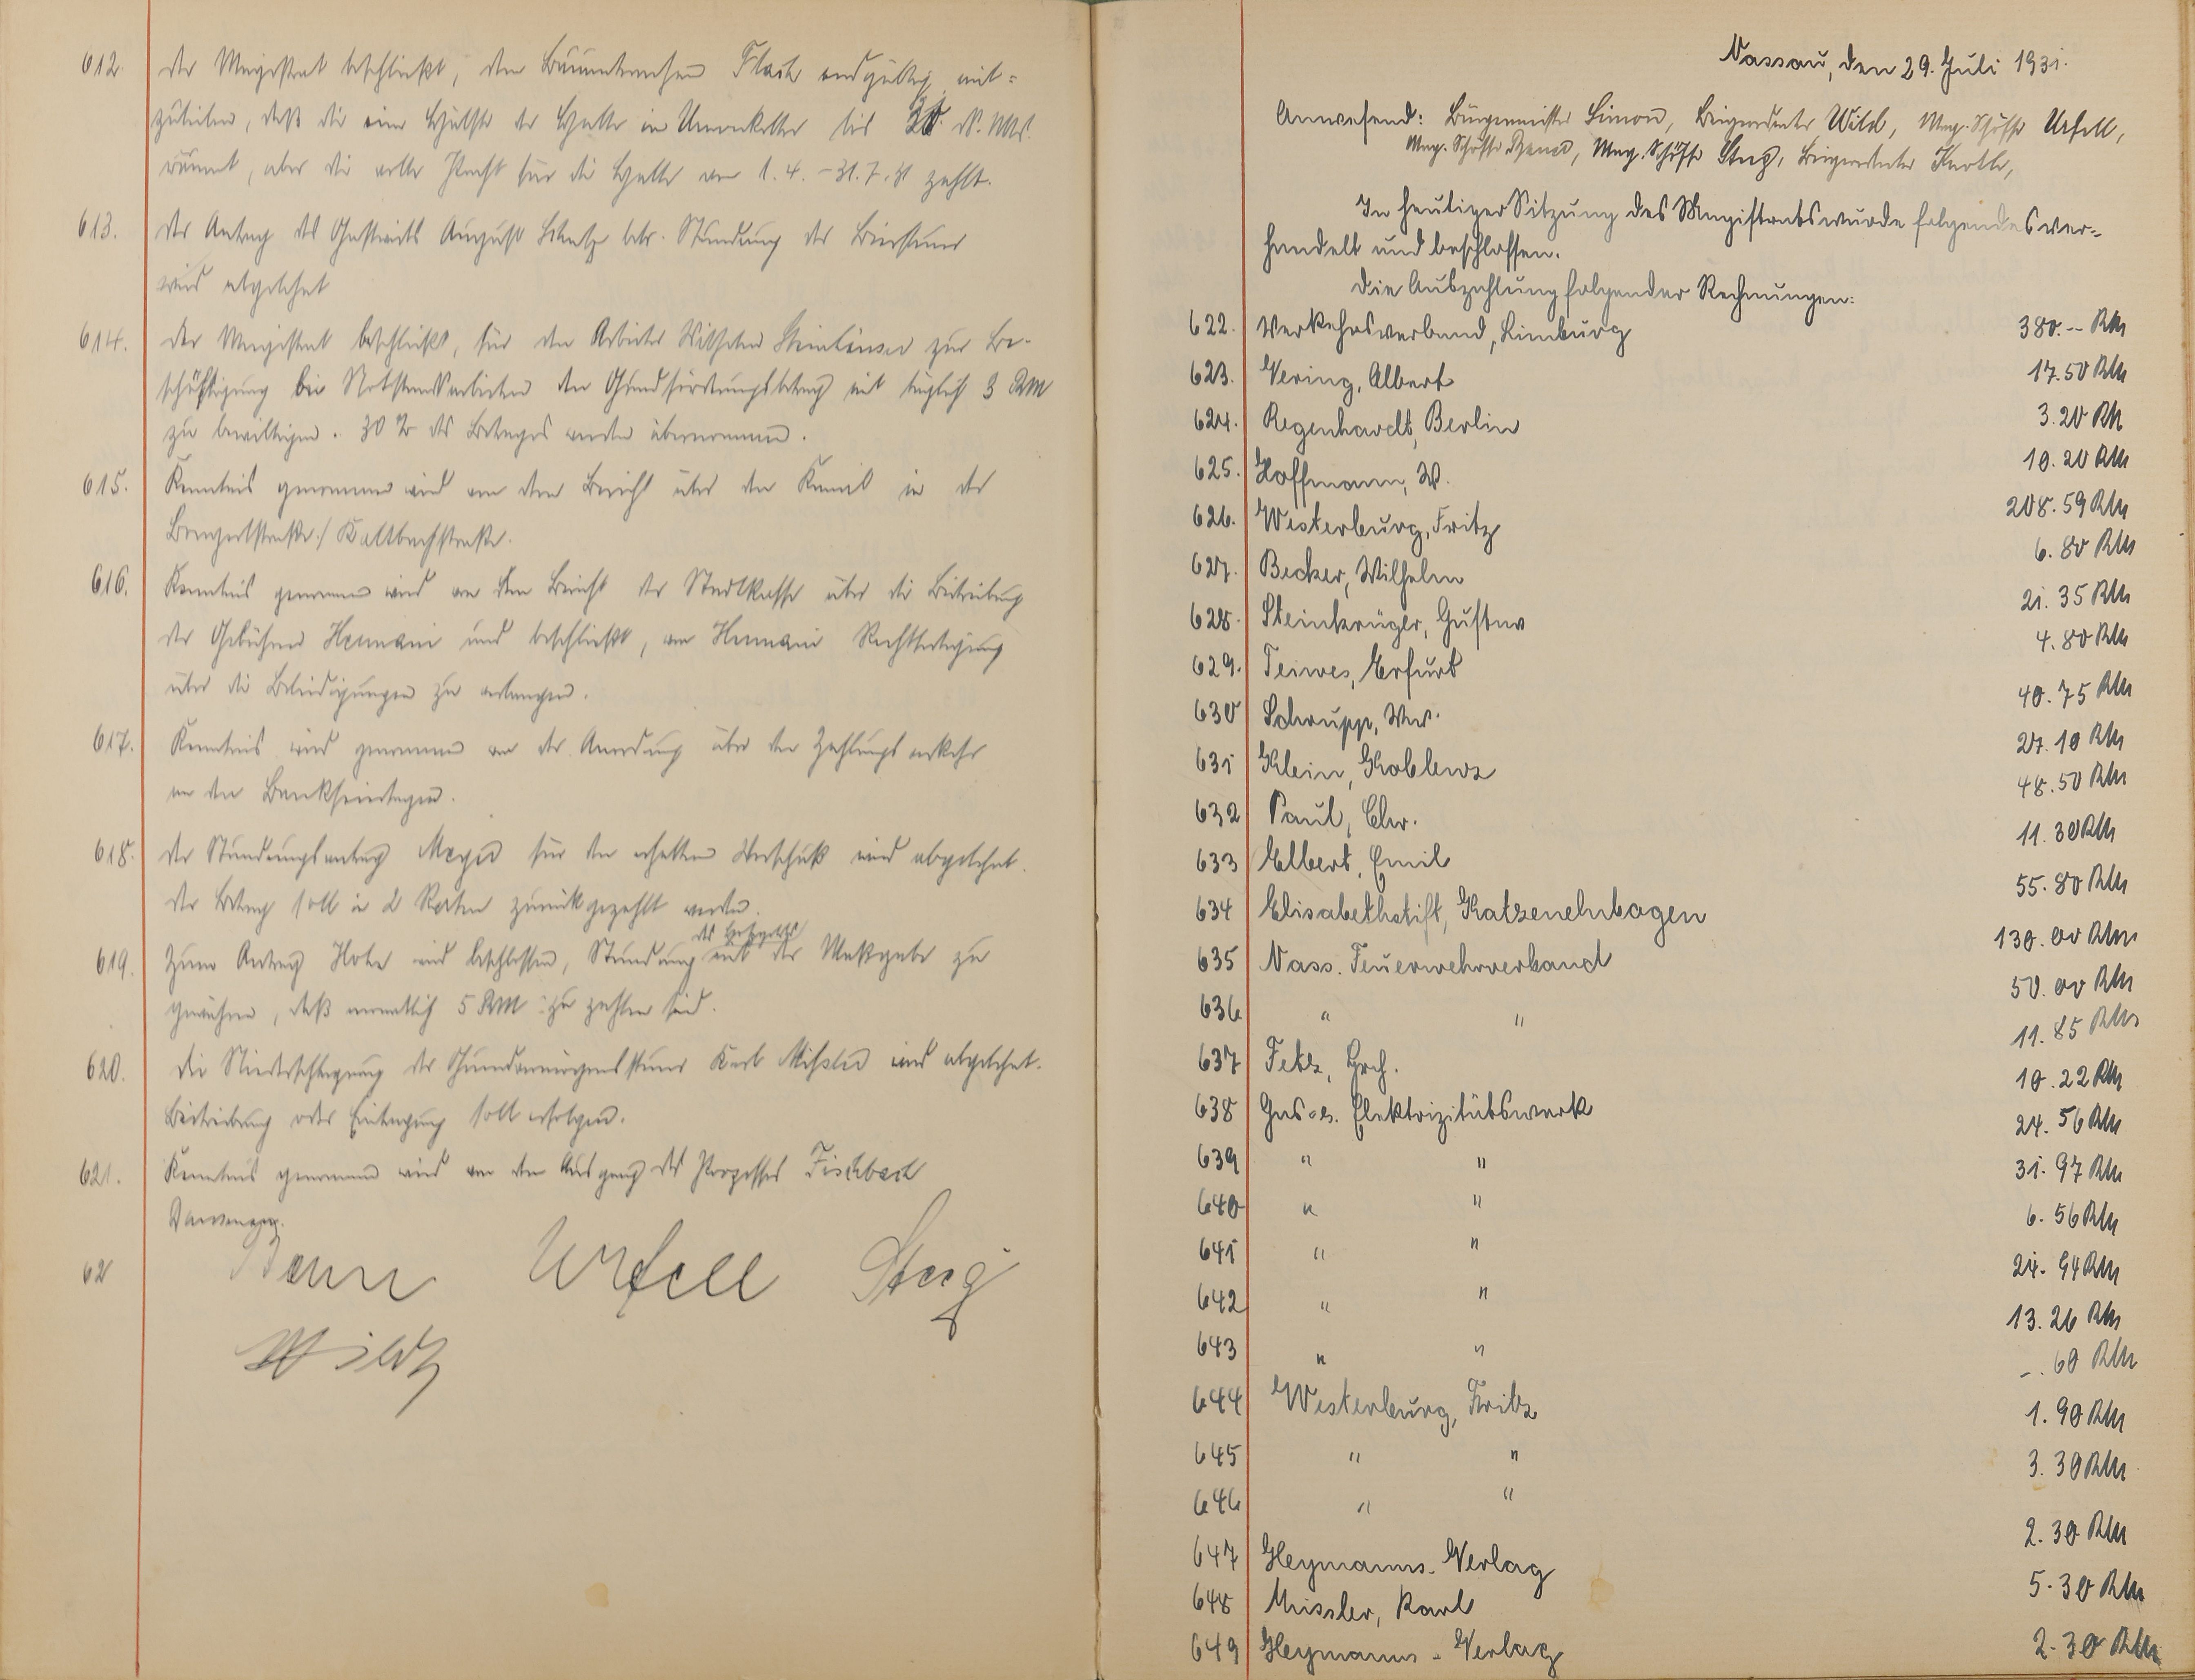 612. Der Magistrat beschließt, dem Bauunternehmer Flach endgültig mit=
zuteilen, daß die eine Hälfte der Halle in Unterkeller bis 31. d. Mts.
räumt, aber die volle Pacht für die Halle vom 1.4. - 31.7.31 zahlt.
613. Der Antrag des Gastwirts August Schatz betr. Stundung der Biersteuer
wird abgelehnt
614. Der Magistrat beschließt, für den Arbeiter Wilhelm Steinhäuser zur Be-
schäftigung bei Notstandsarbeiten den Grundförderungsbetrag mit täglich 3 RM
zu bewilligen. 30 % des Betrages werden übernommen.
615. Kenntnis genommen wird von dem Bericht über den Kanal in der
Bongertstraße / Kaltbachstraße.
616. Kenntnis genommen wird von dem Bericht der Stadtkasse über die Beitreibung
der Gebühren Hermani und beschließt, von Hermani Rechtfertigung
über die Beleidigungen zu verlangen.
617. Kenntnis wird genommen von der Anordnung über den Zahlungsverkehr
an den Bankfeiertagen.
618. Der Stundungsantrag Meyer für den erhaltenen Vorschuß wird abgelehnt.
Der Betrag soll in 2 Raten zurückgezahlt werden.
619. Zum Antrag Hohn wird beschlossen, Stundung mit der Maßgabe zu
gewähren, daß monatlich 5 RM zu zahlen sind.
620. Die Niederschlagung der Grundvermögenssteuer Karl Missler wird abgelehnt.
Beitreibung oder Eintragung soll erfolgen.
621. Kenntnis genommen wird von dem Ausgang des Prozesses Fischbach
62
Urfell Sterz
Wild
Nassau, den 29. Juli 1931.
Anwesend: Bürgermeister Simon, Beigeordneter Wild, Mag. Schöffe Urfell,
Mag. Schöffe Mag. Schöffe Sterz, Beigeordneter Knoth,
In heutiger Sitzung des Magistrats wurde folgendes ver-
handelt und beschlossen.
Die Auszahlung folgender Rechnungen:
622. Verkehrsverband, Limburg 380.-- RM
623. Vering, Albert 17.50 RM
624. Regenhardt, Berlin 3.20 RM
625. Hoffmann, W. 10.20 RM
626. Westerburg, Fritz 208.59 RM
627. Becker, Wilhelm 6.80 RM
628. Steinkrüger, Gustav 21.35 RM
629. Teiwes, Erfurt 4.80 RM
630 Schrupp, Ww. 40.75 RM
631 Klein, Koblenz 27.10 RM
632 Paul, Chr. 48.50 RM
633 Elbert, Emil 11.30 RM
634 Elisabethstift, Katzenelnbogen 55.80 RM
635 Nass. Feuerwehrverband 130.00 RM
636 " " 50.00 RM
637 Fetz, Hch. 11.85 RM
638 Gas- & Elektrizitätswerk 10.22 RM
639 " " 24.56 RM
640 " " 31.97 RM
641 " " 6.56 RM
642 " " 24.94 RM
643 " " 13.26 RM
644 Westerburg, Fritz -.60 RM
645 " " 1.90 RM
646 " " 3.30 RM
647 Heymanns-Verlag 2.30 RM
648 Missler, Karl 5.30 RM
649 Heymanns-Verlag 2.30 RM